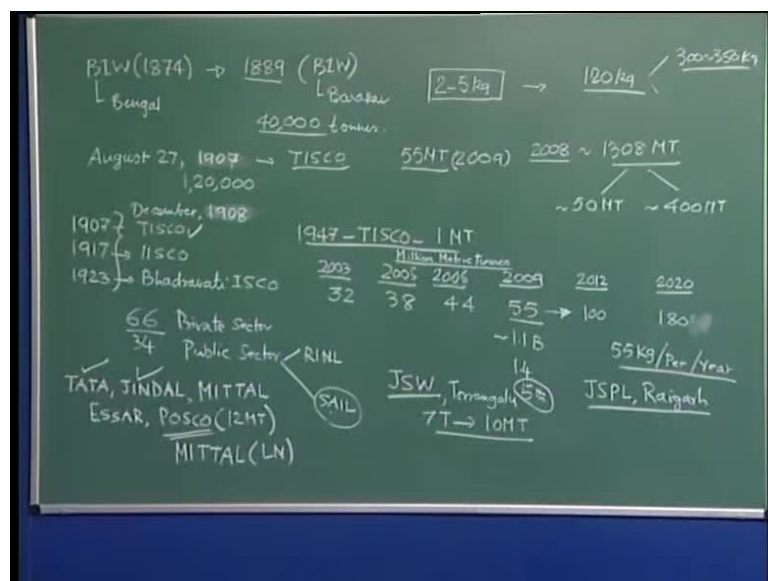 BIW (1874) → 1889 (BIW)
Bengal
Barakar
40,000 tonnes.
2-5kg → 120kg
300~350kg
August 27, 1907 → TISCO 55MT (2009) 2008 ~ 1308 MT
1,20,000
~50MT ~400MT
December, 1908
1907 TISCO ✓
1917 → IISCO
1923 → Bhadravati ISCO
1947 - TISCO - 1 MT
Million Metric tonnes
2003 2005 2006 2009 2012 2020
32 38 44 55 → 100 180
~1.1B
14
55kg/Per/Year
66 Private Sector
34 Public Sector
RINL
SAIL
TATA, JINDAL, MITTAL
ESSAR, POSCO (12MT)
MITTAL (LN)
JSW, 5th
7T → 10MT
JSPL, Raigarh